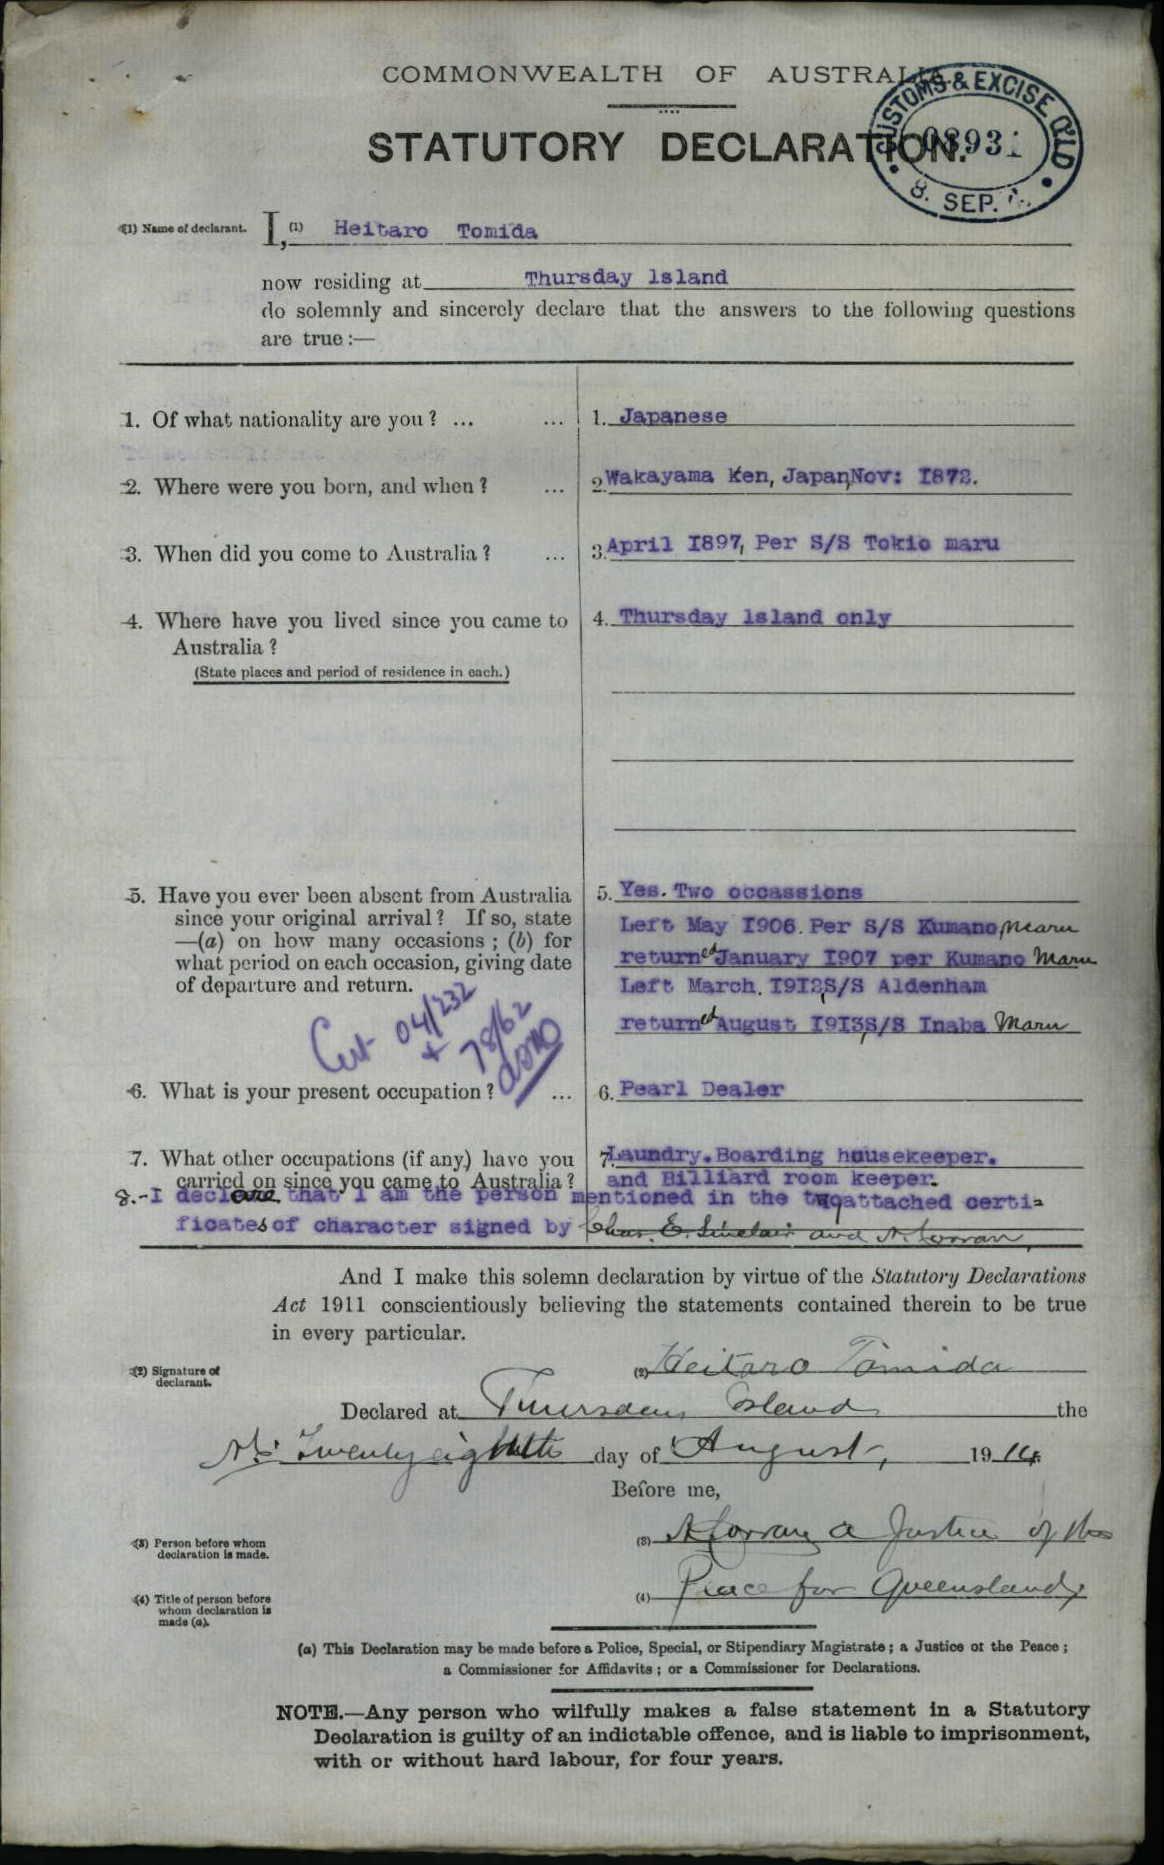 COMMONWEALTH OF AUSTRALIA.
STATUTORY DECLARATION.
CUSTOMS & EXCISE QLD
08931
8. SEP.
(1) Name of declarant. I,(1) Heitaro Tomida
now residing at Thursday lsland
do solemnly and sincerely declare that the answers to the following questions
are true :—
1. Of what nationality are you ? ... ... 1. Japanese
2. Where were you born, and when ? ... 2. Wakayama Ken, Japan, Nov: I872.
3. When did you come to Australia ? ... 3. April I897, Per S/S Tokio maru
4. Where have you lived since you came to 4. Thursday lsland only
Australia ?
(State places and period of residence in each.)
5. Have you ever been absent from Australia 5. Yes. Two occassions
since your original arrival ? If so, state Left May I906. Per S/S Kumano Maru
—(a) on how many occasions ; (b) for
what period on each occasion, giving date returned January I907 per Kumano Maru
of departure and return. Left March. I9I2, S/S Aldenham
returned August I9I3, S/S Inaba Maru
Cert 04/232
+ 78/62
6. What is your present occupation ? ... 6. Pearl Dealer
7. What other occupations (if any) have you 7. Laundry. Boarding housekeeper.
carried on since you came to Australia ? and Billiard room keeper.
8.-I declare that l am the person mentioned in the two attached certi=
ficates of character signed by Chas. E. Sinclair and
And I make this solemn declaration by virtue of the Statutory Declarations
Act 1911 conscientiously believing the statements contained therein to be true
in every particular.
(2) Signature of
declarant.
(2) Heitaro Tomida
Declared at Thursday Island the
Twenty eighth day of August, 1914
Before me,
(3) Person before whom
declaration is made.
(3) a Justice of the
(4) Title of person before
whom declaration is
made (a).
(4) Peace for Queensland,
(a) This Declaration may be made before a Police, Special, or Stipendiary Magistrate ; a Justice of the Peace ;
a Commissioner for Affidavits ; or a Commissioner for Declarations.
NOTE.—Any person who wilfully makes a false statement in a Statutory
Declaration is guilty of an indictable offence, and is liable to imprisonment,
with or without hard labour, for four years.